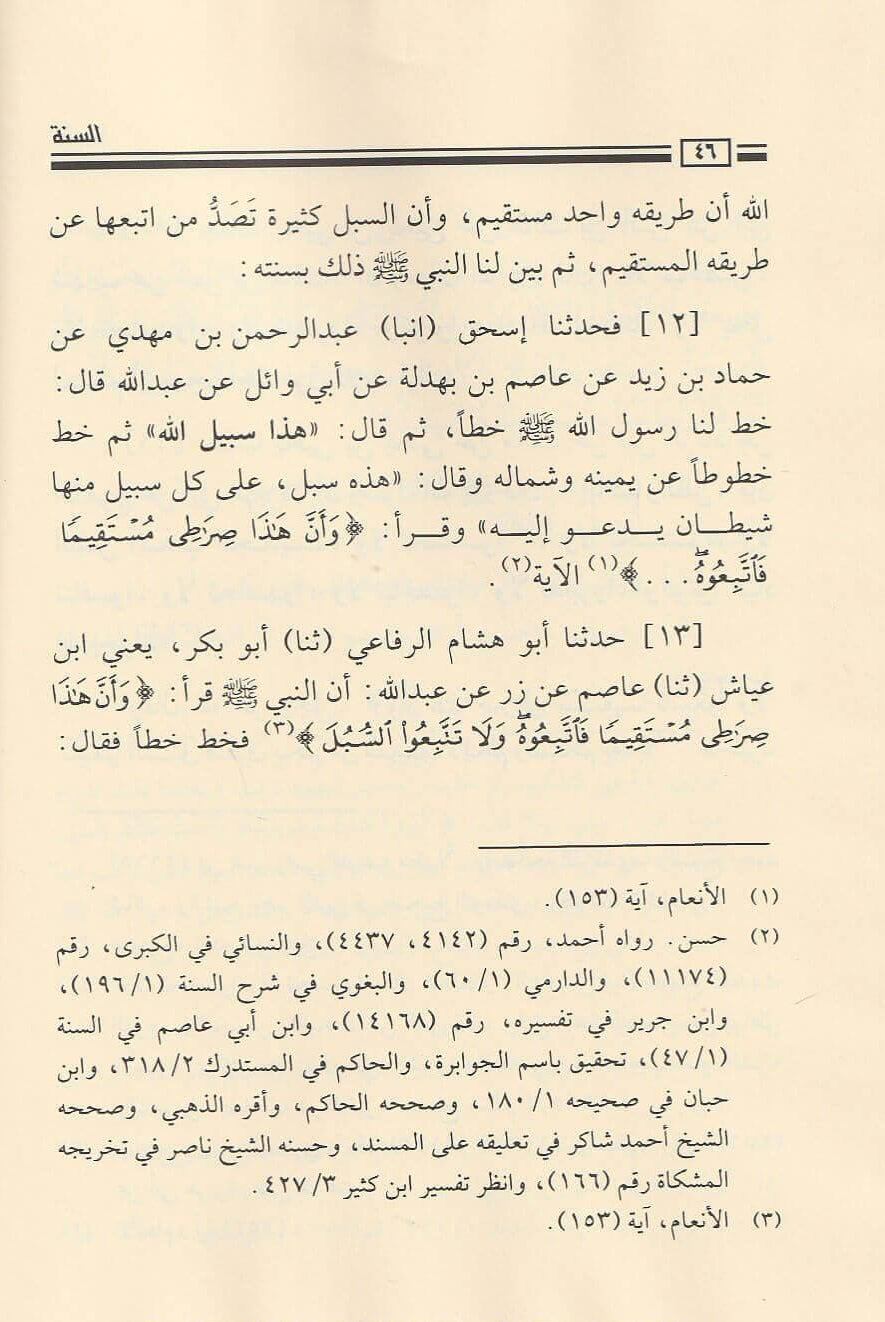 السنة
٤٦
الله أن طريقه واحد مستقيم، وأن السبل كثيرة تَصَدُّ من اتبعها عن
طريقه المستقيم، ثم بين لنا النبي ﷺ ذلك بسنته:
[١٢] فحدثنا إسحق (انبا) عبدالرحمن بن مهدي عن
حماد بن زيد عن عاصم بن بهدلة عن أبي وائل عن عبدالله قال:
خط لنا رسول الله ﷺ خطاً، ثم قال: «هذا سبيل الله» ثم خط
خطوطاً عن يمينه وشماله وقال: «هذه سبل، على كل سبيل منها
شيطان يدعو إليه» وقرأ: ﴿وَأَنَّ هَٰذَا صِرَٰطِى مُسْتَقِيمًا
فَٱتَّبِعُوهُۖ...﴾(١) الآية(٢).
[١٣] حدثنا أبو هشام الرفاعي (ثنا) أبو بكر، يعني ابن
عياش (ثنا) عاصم عن زر عن عبدالله: أن النبي ﷺ قرأ: ﴿وَأَنَّ هَٰذَا
صِرَٰطِى مُسْتَقِيمًا فَٱتَّبِعُوهُۖ وَلَا تَتَّبِعُوا۟ ٱلسُّبُلَ﴾(٣) فخط خطاً فقال:
(١) الأنعام، آية (١٥٣).
(٢) حسن. رواه أحمد، رقم (٤١٤٢، ٤٤٣٧)، والنسائي في الكبرى، رقم
(١١١٧٤)، والدارمي (٦٠/١)، والبغوي في شرح السنة (١٩٦/١)،
وابن جرير في تفسيره، رقم (١٤١٦٨)، وابن أبي عاصم في السنة
(٤٧/١)، تحقيق باسم الجوابرة، والحاكم في المستدرك ٣١٨/٢، وابن
حبان في صحيحه ١٨٠/١، وصححه الحاكم، وأقره الذهبي، وصححه
الشيخ أحمد شاكر في تعليقه على المسند، وحسنه الشيخ ناصر في تخريجه
المشكاة رقم (١٦٦)، وانظر تفسير ابن كثير ٤٢٧/٣.
(٣) الأنعام، آية (١٥٣).